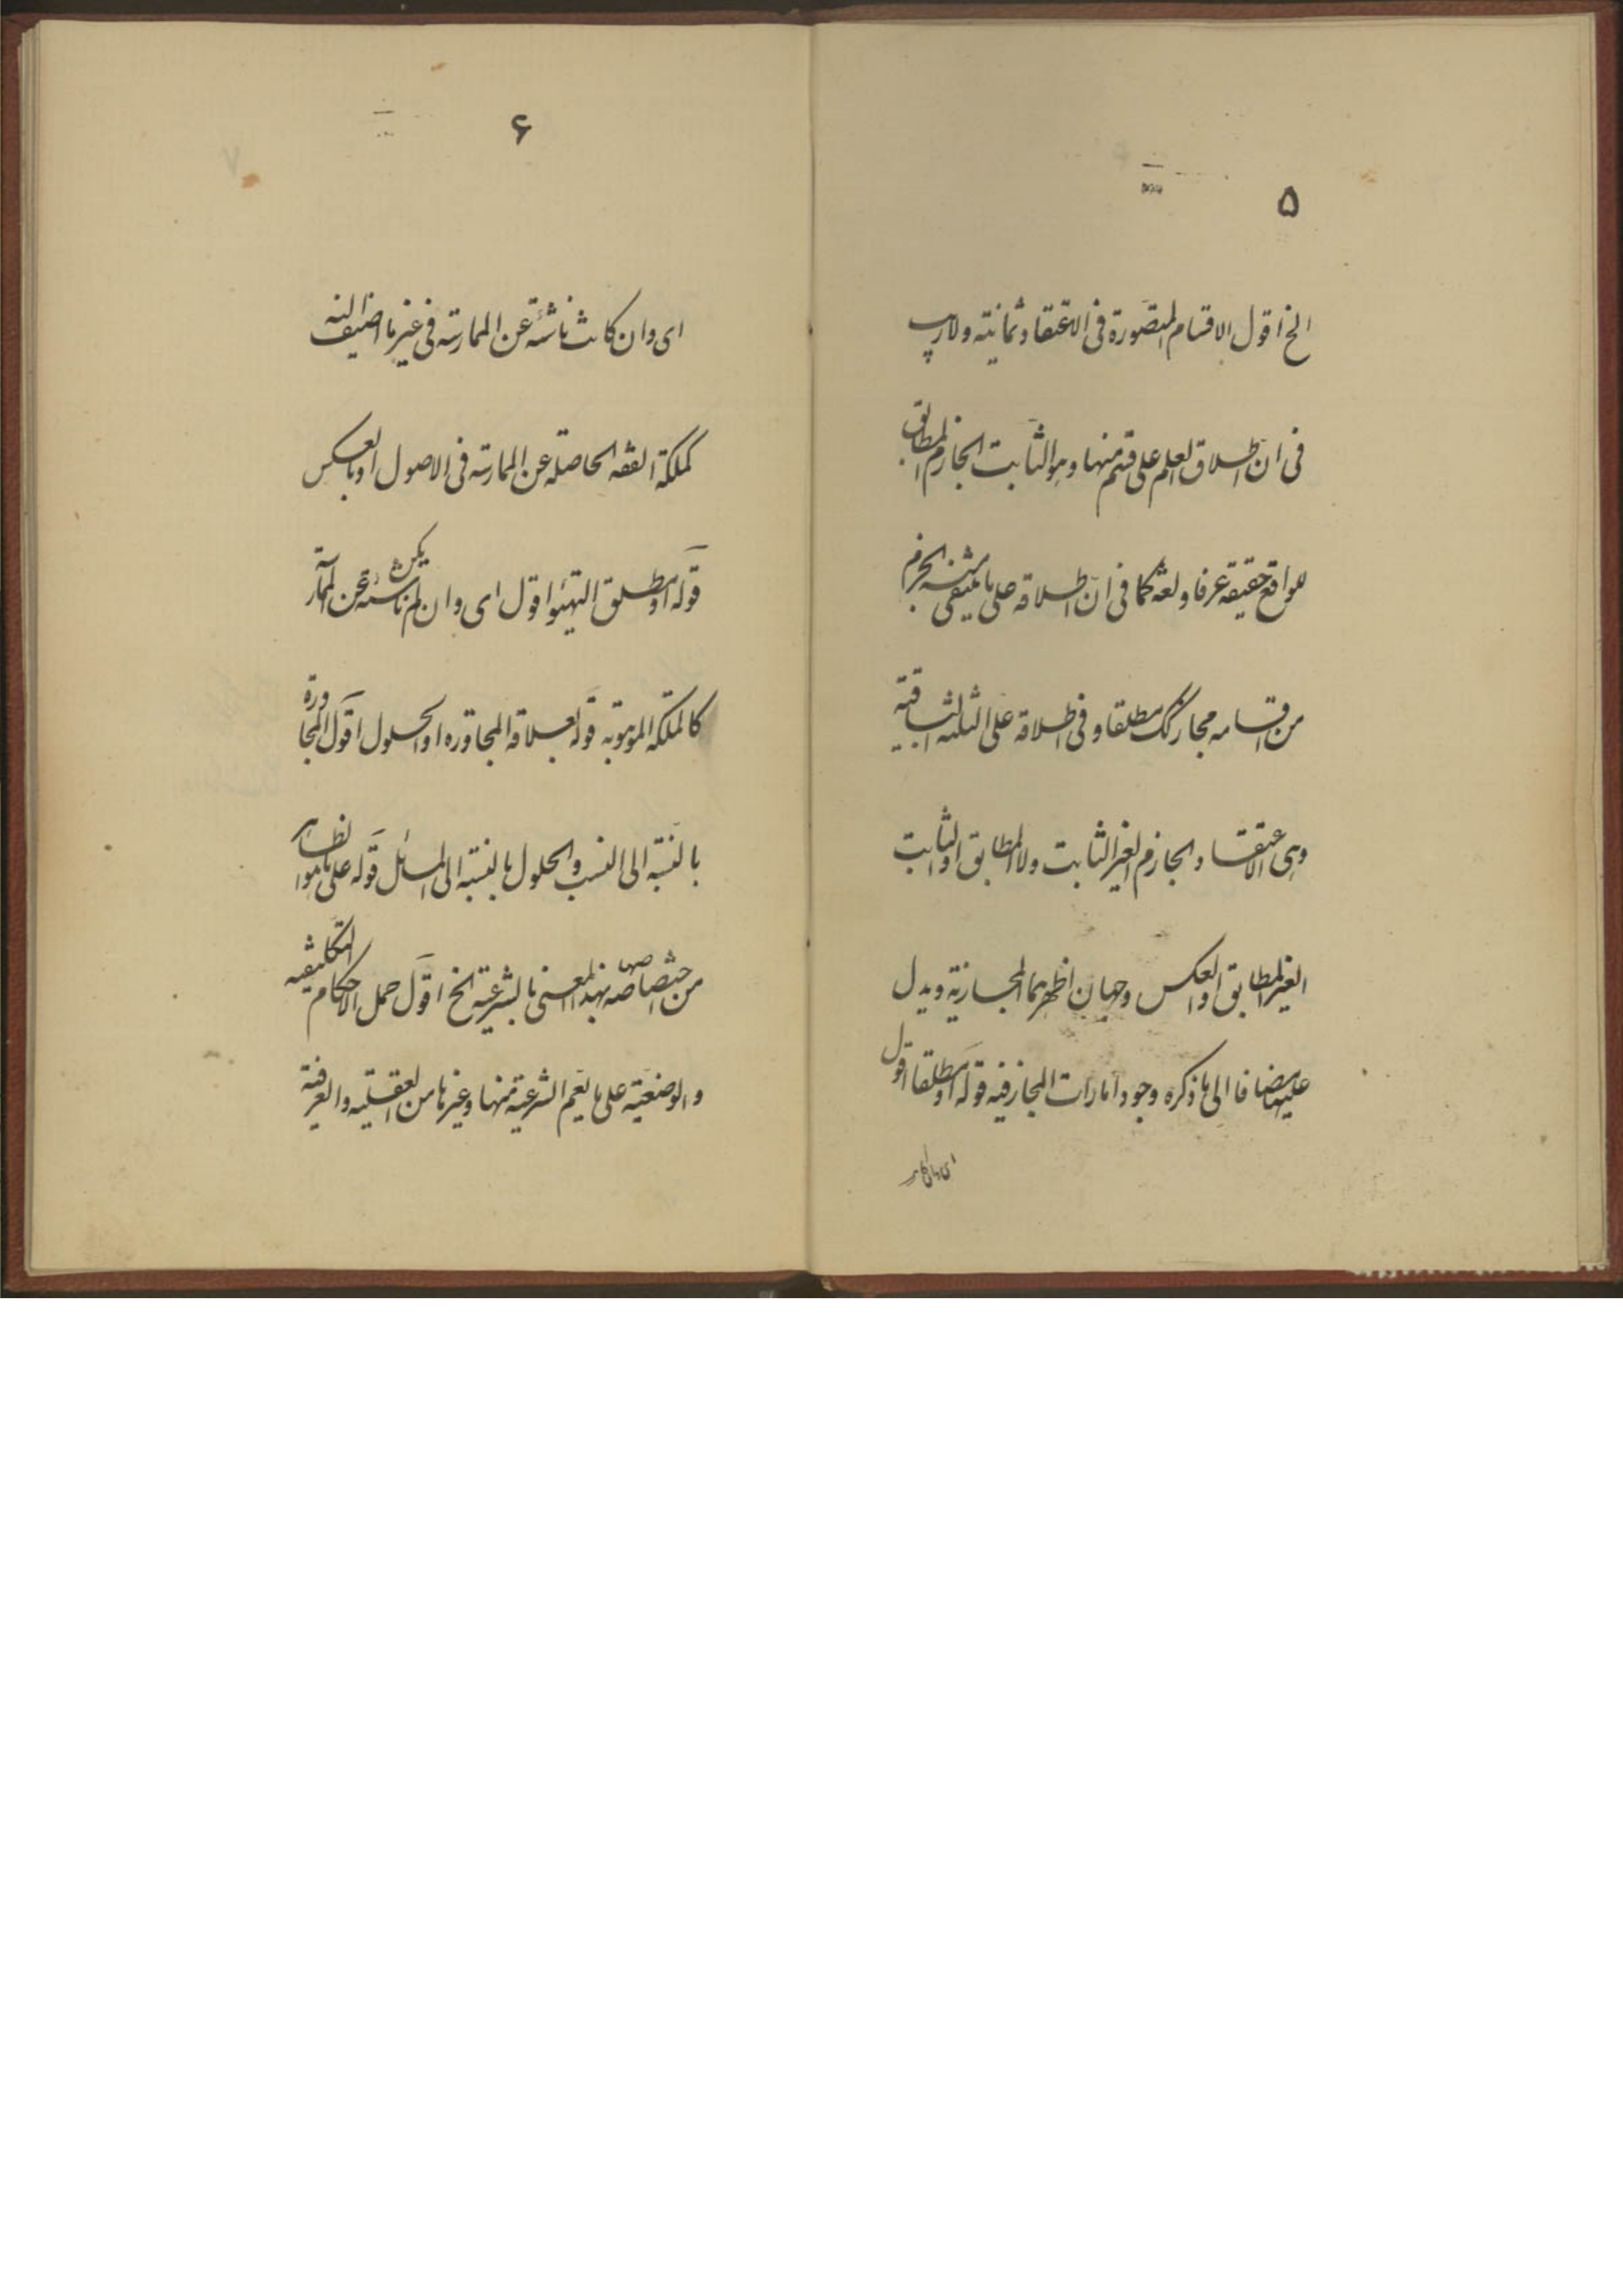 ۵
الخ اقول الاقسام المتصورة فى الاعتقاد ثمانية ولاريب
فى ان اطلاق العلم على قسم منها وهو الثابت الجازم المطابق
للواقع حقيقة عرفا ولغة كما فى ان اطلاقه على ما ينتفى فيه الجزم
من اقسامه مجاز كك مطلقا وفى اطلاقه على الثلثة الباقية
وهى الاعتقاد الجازم الغير الثابت ولا المطابق او الثابت
الغير المطابق والعكس وجهان اظهرهما المجازية ويدل
عليه مضافا الى ما ذكره وجود امارات المجاز فيه قوله او مطلقا اقول
۶
اى وان كانت ناشئة عن الممارسة فى غير ما اضيف اليه
كملكة الفقه الحاصلة عن الممارسة فى الاصول او بالعكس
قوله او مطلق التهيؤ اقول اى وان لم يكن ناشئة عن الممارسة
كالملكة الموهوبة قوله لعلاقة المجاورة او الحلول اقول المجاورة
بالنسبة الى النسب والحلول بالنسبة الى المسائل قوله على ما هو الظاهر
من اختصاصه بهذا المعنى بالشرعية الخ اقول حمل الاحكام التكليفيه
والوضعية على ما يعم الشرعية منها وغيرها من العقلية والعرفية